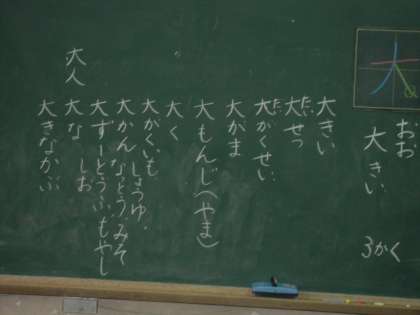 大
おお
大きい
3かく
大きい
たい
大せつ
だい
大がくせい
大がま
大もんじ(やま)
大く
大がくいも
しょうゆ、
大かん
なっとう、みそ
大ず
とうふ、もやし
大人
大な
しお
大きなかぶ